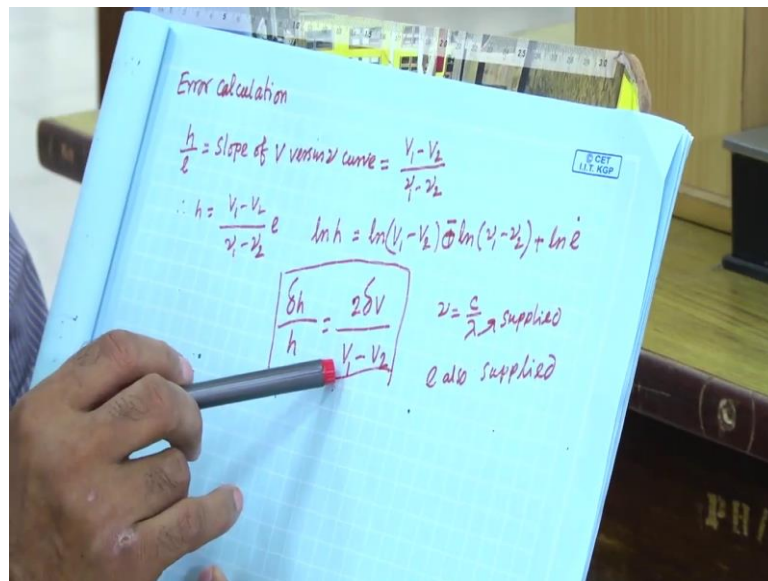 Error calculation
h/e = slope of V versus ν curve = (V₁ - V₂)/(ν₁ - ν₂)
© CET
I.I.T. KGP
∴ h = (V₁ - V₂)/(ν₁ - ν₂) e    ln h = ln(V₁ - V₂) - ln(ν₁ - ν₂) + ln e
δh/h = 2δV/(V₁ - V₂)    ν = c/λ → supplied
e also supplied
PH/